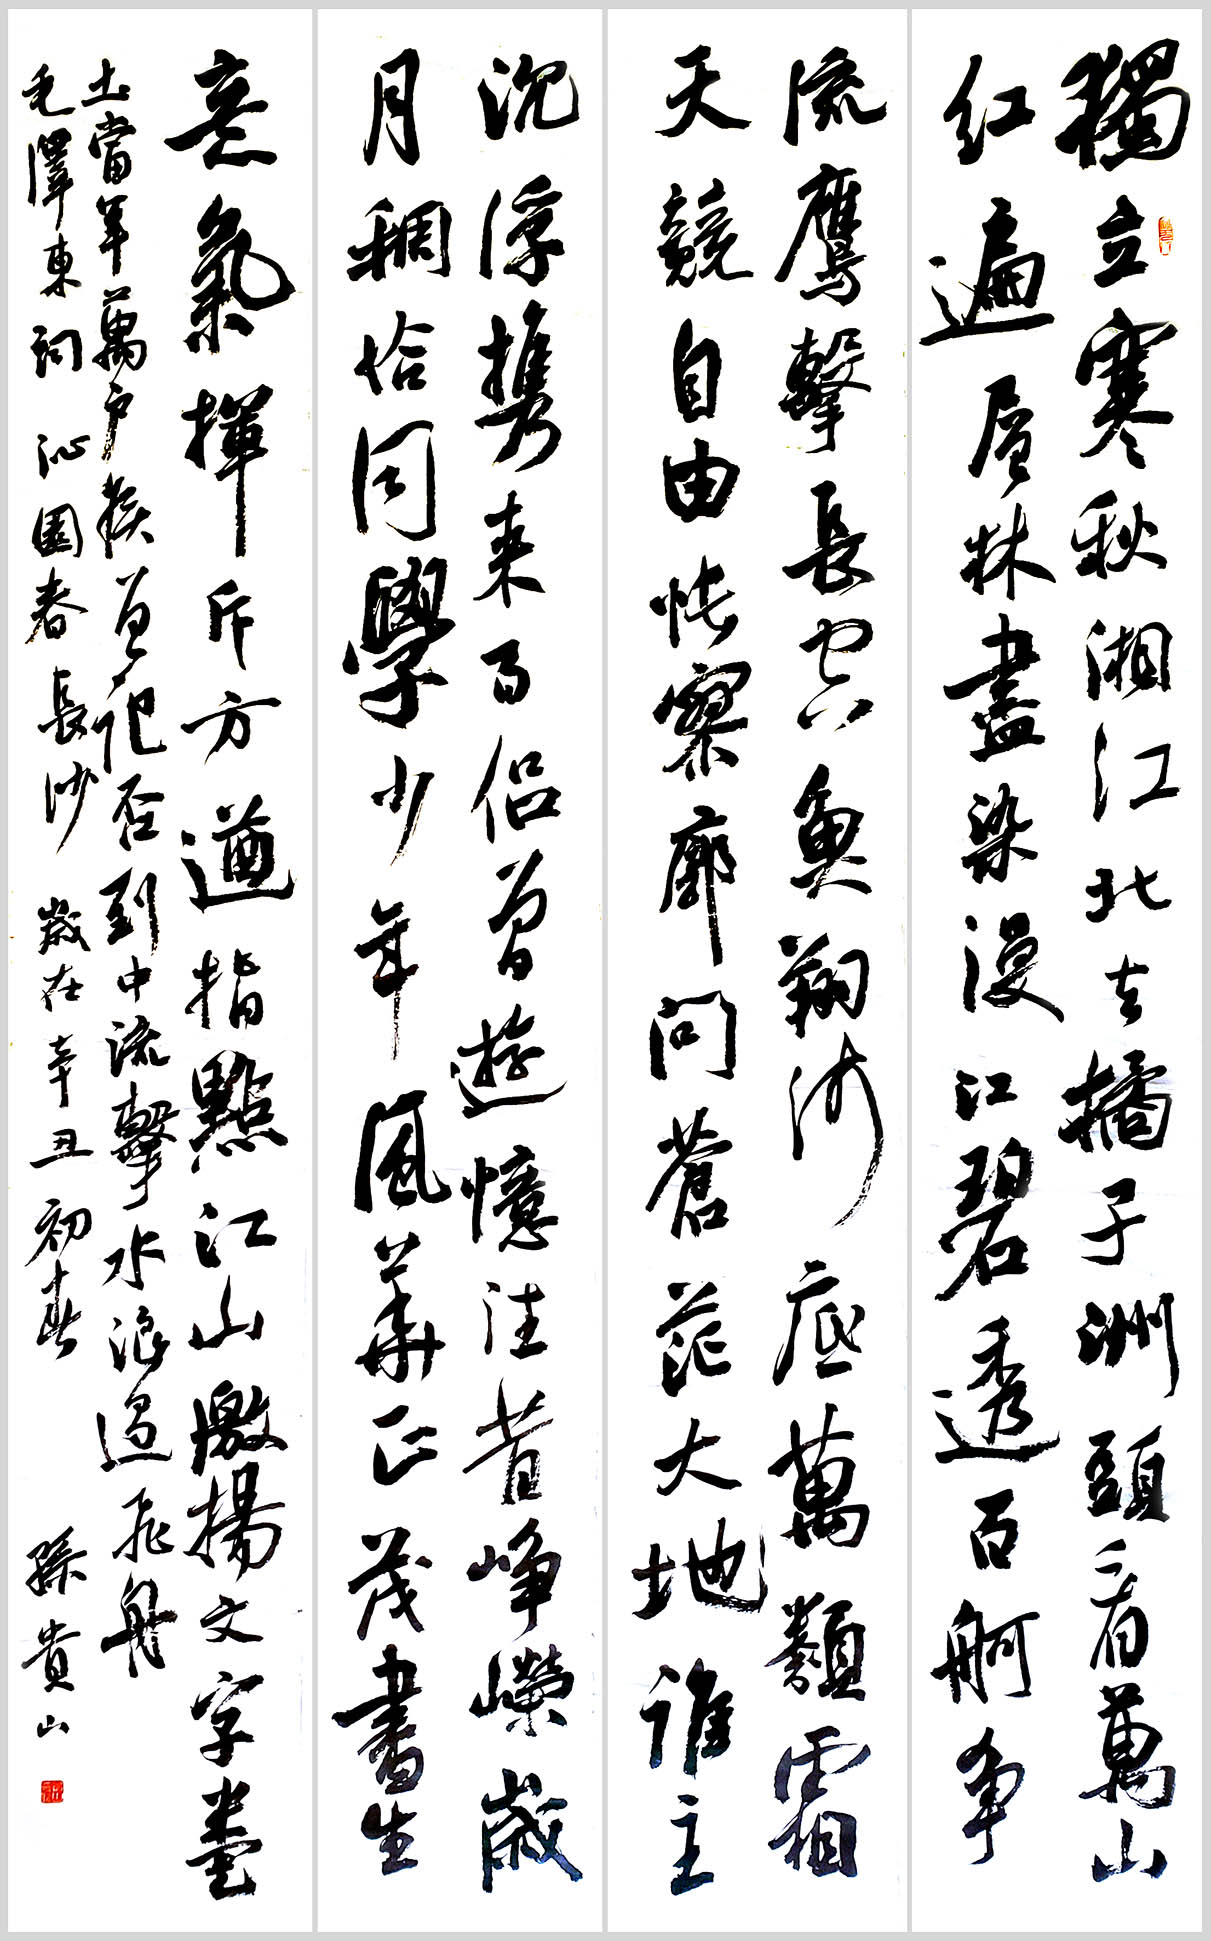 獨立寒秋湘江北去橘子洲頭看萬山
紅遍層林盡染漫江碧透百舸争
流鷹擊長空魚翔淺底萬類霜
天競自由悵寥廓問蒼茫大地誰主
沉浮携来百侣曾遊憶往昔崢嶸歲
月稠恰同學少年風華正茂書生
意氣揮斥方遒指點江山激揚文字糞
土當年萬户侯曾記否到中流擊水浪遏飛舟
毛澤東詞 沁園春 長沙 歲在辛丑初春 孫貴山